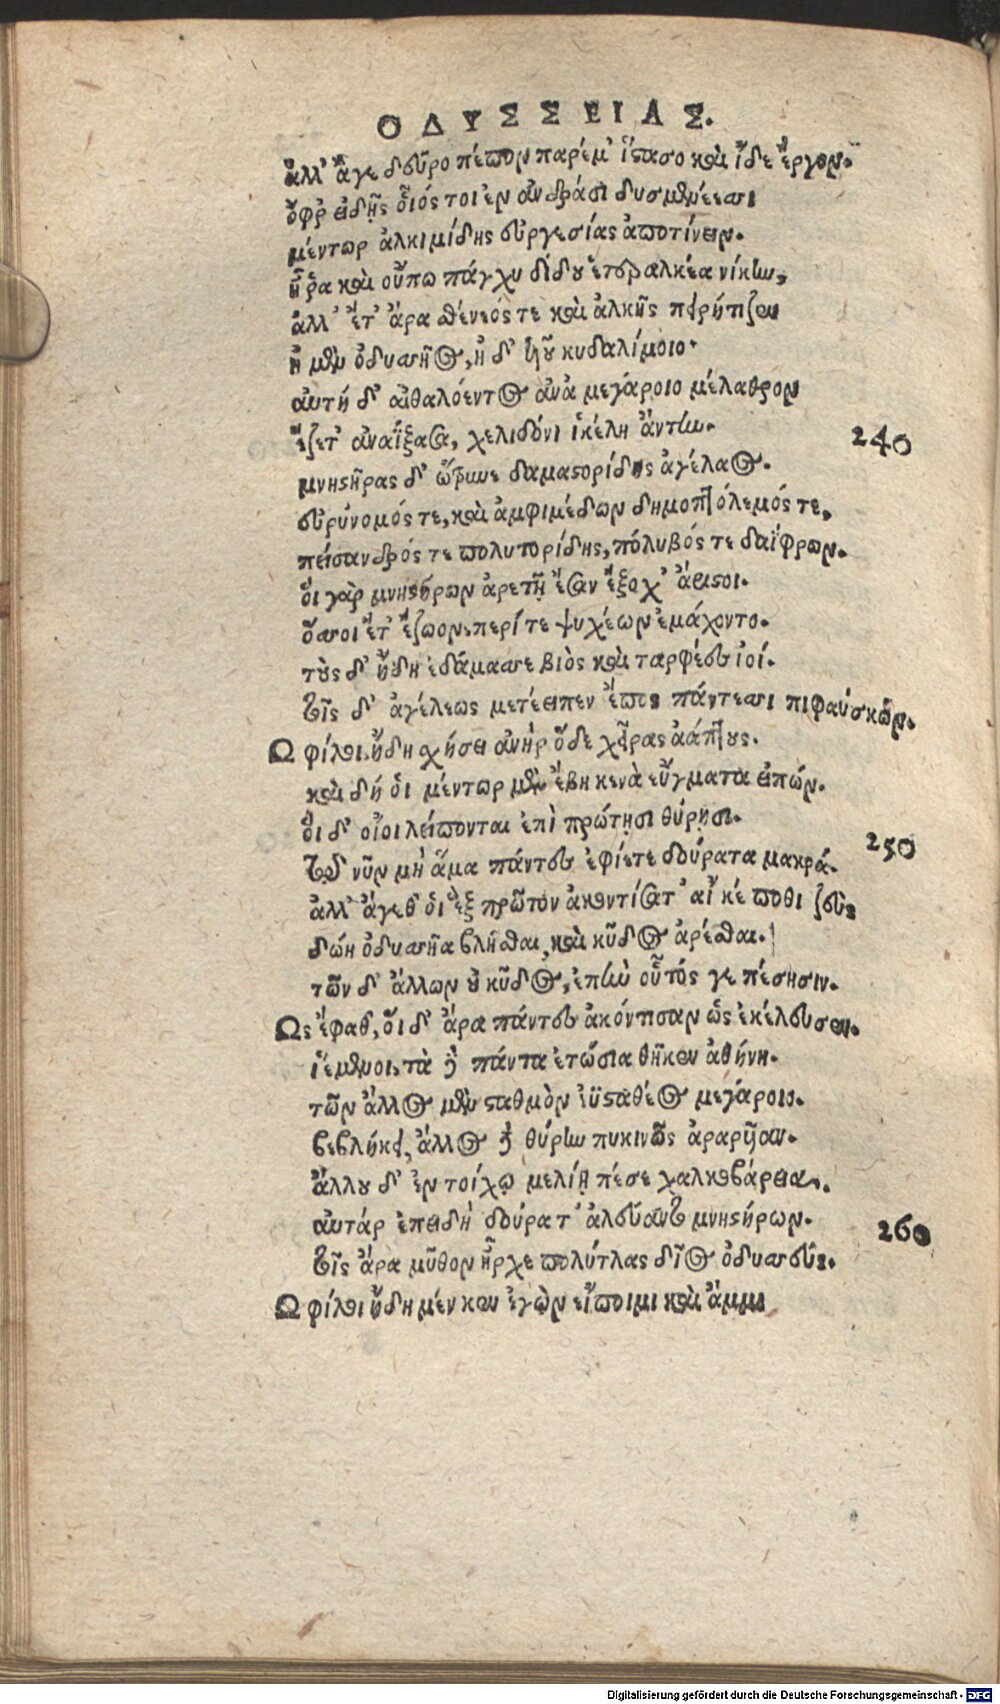 ΟΔΥΣΣΕΙΑΣ.
ἀλλ' ἄγε δεῦρο πέπον παρέμ' ἵστασο καὶ ἴδε ἔργον.
ὄφρ εἰδῇς οἷός τοι ἐν ἀνδράσι δυσμενέεσσι
μέντωρ ἀλκιμίδης εὐργεσίας ἀποτίνειν.
ἦ ῥα καὶ οὔπω πάγχυ δίδου ἑτεραλκέα νίκην,
ἀλλ' ἔτ' ἄρα σθένεός τε καὶ ἀλκῆς πειρήτιζεν
ἠ μὲν ὀδυσσῆος, ἠ δ' ὑοῦ κυδαλίμοιο·
αὐτὴ δ' αἰθαλόεντος ἀνὰ μεγάροιο μέλαθρον
ἕζετ' ἀναΐξασα, χελιδόνι ἰκέλη ἄντην. 240
μνηστῆρας δ' ὤτρυνε δαμαστορίδης ἀγέλαος.
εὐρύνομός τε, καὶ ἀμφιμέδων δημοπτόλεμός τε,
πείσανδρός τε πολυτορίδης, πόλυβός τε δαΐφρων.
οἱ γὰρ μνηστήρων ἀρετῇ ἔσαν ἔξοχ' ἄριστοι.
ὅσσοι ἔτ' ἔζωον, περί τε ψυχέων ἐμάχοντο.
τοὺς δ' ἤδη ἐδάμασσε βιὸς καὶ ταρφέες ἰοί.
τοῖς δ' ἀγέλεως μετέειπεν ἔπος πάντεσσι πιφαύσκων.
Ω φίλοι, ἤδη χήσει ἀνὴρ ὅδε χεῖρας ἀάπτους.
καὶ δή οἱ μέντωρ μὲν ἔβη κενὰ εὔγματα εἰπών.
οἱ δ' οἶοι λείπονται ἐπὶ πρώτῃσι θύρῃσι. 250
τῷ νῦν μὴ ἅμα πάντες ἐφίετε δούρατα μακρά.
ἀλλ' ἄγεθ' οἱ ἓξ πρῶτον ἀκοντίσατ' αἴ κέ ποθι ζεὺς
δώῃ ὀδυσσῆα βλῆσθαι, καὶ κῦδος ἀρέσθαι.
τῶν δ' ἄλλων οὐ κῦδος, ἐπὴν οὗτός γε πέσησιν.
Ως ἔφαθ', οἱ δ' ἄρα πάντες ἀκόντισαν ὡς ἐκέλευσεν.
ἱέμενοι, τὰ δὲ πάντα ἐτώσια θῆκεν ἀθήνη.
τῶν ἄλλος μὲν σταθμὸν ἐϋσταθέος μεγάροιο.
βεβλήκει, ἄλλος δὲ θύρην πυκινῶς ἀραρῦιαν.
ἄλλου δ' ἐν τοίχῳ μελίη πέσε χαλκοβάρεια.
αὐτὰρ ἐπειδὴ δούρατ' ἀλεύαντο μνηστήρων. 260
τοῖς ἄρα μῦθον ἦρχε πολύτλας δῖος ὀδυσσεύς.
Ω φίλοι ἤδη μέν κεν ἐγὼν εἴποιμι καὶ ἄμμι
Digitalisierung gefördert durch die Deutsche Forschungsgemeinschaft - DFG